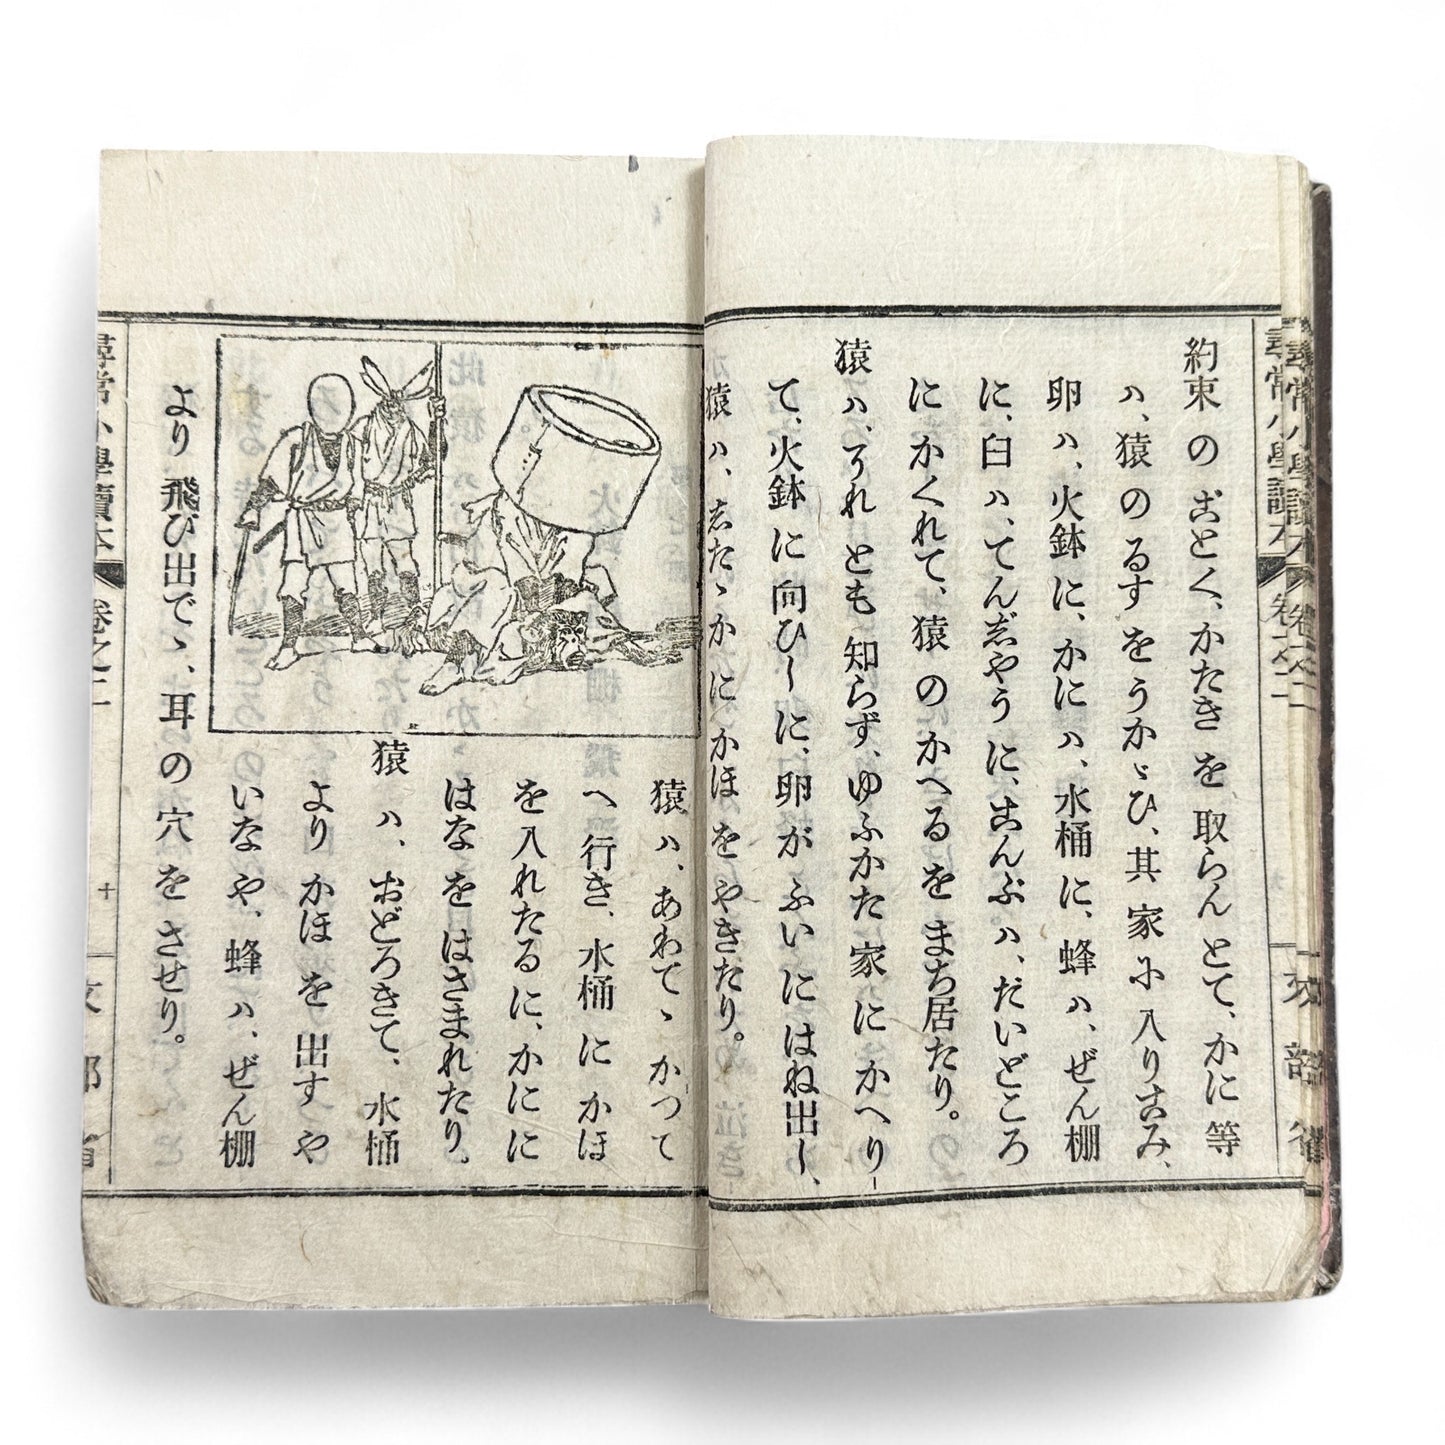 尋常小學讀本 卷之二
約束のおとく、かたきを取らんとて、かに等
ハ、猿のるすをうかゞひ、其家に入りこみ、
卵ハ、火鉢に、かにハ、水桶に、蜂ハ、ぜん棚
に、臼ハ、てんじやうに、こんぶハ、だいどころ
にかくれて、猿のかへるをまち居たり。
猿ハ、それとも知らず、ゆふかた家にかへり
て、火鉢に向ひしに、卵がふいにはね出し、
猿ハ、したゝかにかほをやきたり。
猿ハ、あわてゝかつて
へ行き、水桶にかほ
を入れたるに、かにに
はなをはさまれたり。
猿ハ、おどろきて、水桶
よりかほを出すや
いなや、蜂ハ、ぜん棚
より飛び出でゝ、耳の穴をさせり。
尋常小學讀本 卷之二 十 文部省